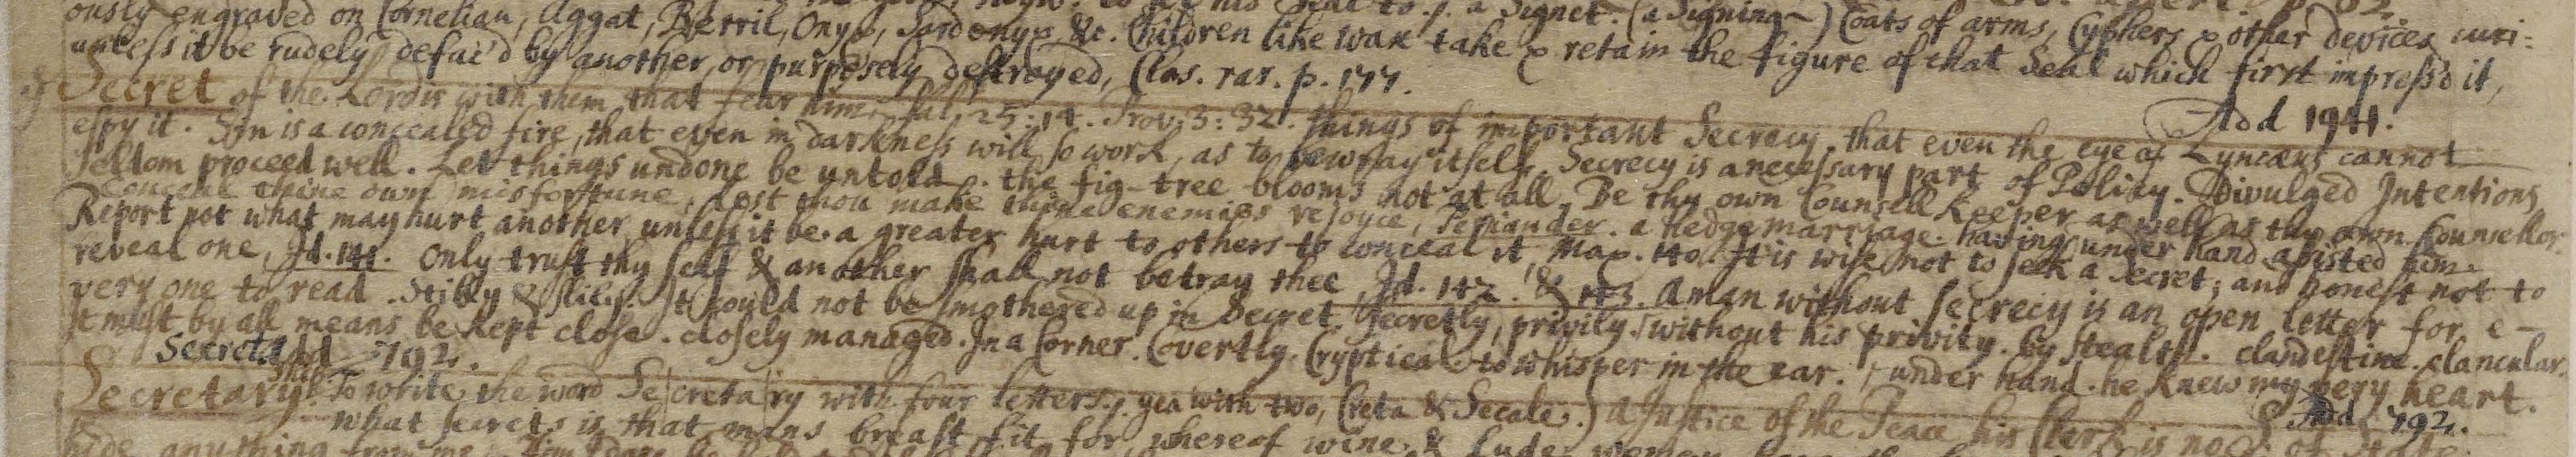 his Seal to. p. a Signet. (a Signing) Coats of arms, Cyphers & other devices curi:
ously engraved on Cornelian, Aggat, Berril, Onyx, Sardonyx &c. Children like wax take & retain the figure of that Seal which first impress'd it,
unless it be rudely defac'd by another, or purposely destroyed, Clas. rar. p. 177.
Add 1941.
Secret of the Lord is with them that fear him, Psal. 25:14. Prov. 3:32. things of important Secrecy. that even the eye of Lyncæus cannot
espy it. Sin is a concealed fire, that even in darkness will so work, as to bewray itself. Secrecy is a necessary part of Policy. Divulged Intentions
seldom proceed well. Let things undone be untold. the fig-tree blooms not at all. Be thy own Counsell Keeper as well as thy own Counsellor.
Conceal thine own misfortune, lest thou make thine enemies rejoyce, Periander. a Hedge marriage. having under hand assisted him.
Report not what may hurt another, unless it be a greater hurt to others to conceal it, Max. 140. It is wise not to seek a Secret; and honest not to
reveal one, Id. 141. Only trust thy self & another shall not betray thee, Id. 142. & 143. A man without secrecy is an open letter for e-
very one to read. Stilly & It could not be smothered up in Secret. Secretly, privily. without his privity. by stealth. clandestine. clancular.
it must by all means be kept close. closely managed. In a Corner. Covertly. Cryptical. to whisper in the ear. under hand. he knew my very heart.
Secret Add 792.
Add 792.
Secretary To write the word Se|creta|ry with four letters. yea with two, Creta & Secale.) A Justice of the Peace his Clerk is no S. of State.
what secrets is that mans breast fit for, whereof wine & lude women
hide any thing from me